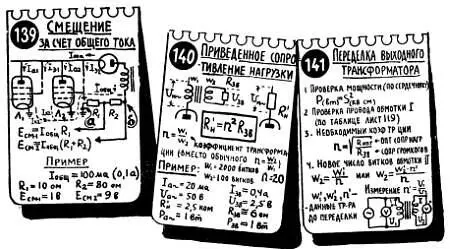 139 СМЕЩЕНИЕ
ЗА СЧЕТ ОБЩЕГО ТОКА
Iа~
Iа1 Iэ1 Iа2 Iэ2
Iобщ
Л1 Л2 R1 R2
а б
Eсм1=Iобщ R1
Eсм2=Iобщ(R1+R2)
ПРИМЕР
Iобщ=100ма (0,1а)
R1=10ом R2=80ом
Eсм1=1В Eсм2=9В
140 ПРИВЕДЕННОЕ СОПРО-
ТИВЛЕНИЕ НАГРУЗКИ
W1 W2 Iзв
Uа~ Uзв Rзв Rн'
Rн'=n²Rзв
n=W1/W2 - КОЭФФИЦИЕНТ ТРАНСФОРМА-
ЦИИ (ВМЕСТО ОБЫЧНОГО n=W2/W1)
ПРИМЕР: W1=2000 ВИТКОВ
W2=100 ВИТКОВ n=20
Iа~=20ма Iзв=0,4а
Uа~=50В Uзв=2,5В
Rн'=2,5ком Rзв=6ом
Pа~=1вт Pзв=1вт
141 ПЕРЕДЕЛКА ВЫХОДНОГО
ТРАНСФОРМАТОРА
1 ПРОВЕРКА МОЩНОСТИ (ПО СЕРДЕЧНИКУ)
P(вт)=S²(кв см)
2 ПРОВЕРКА ПРОВОДА ОБМОТКИ I
(ПО ТАБЛИЦЕ ЛИСТ 119)
3. НЕОБХОДИМЫЙ КОЭФ ТР ЦИИ
n=√Rопт/Rзвр ОПТ СОПР НАГР
СОПР ГРОМКОГОВ
4. НОВОЕ ЧИСЛО ВИТКОВ ОБМОТКИ II
W2=W1'/n ИЛИ W2=W2'·n'/n
W1', W2', n'-
-ДАННЫЕ ТР-РА
ДО ПЕРЕДЕЛКИ
ИЗМЕРЕНИЕ n'=U1/U2